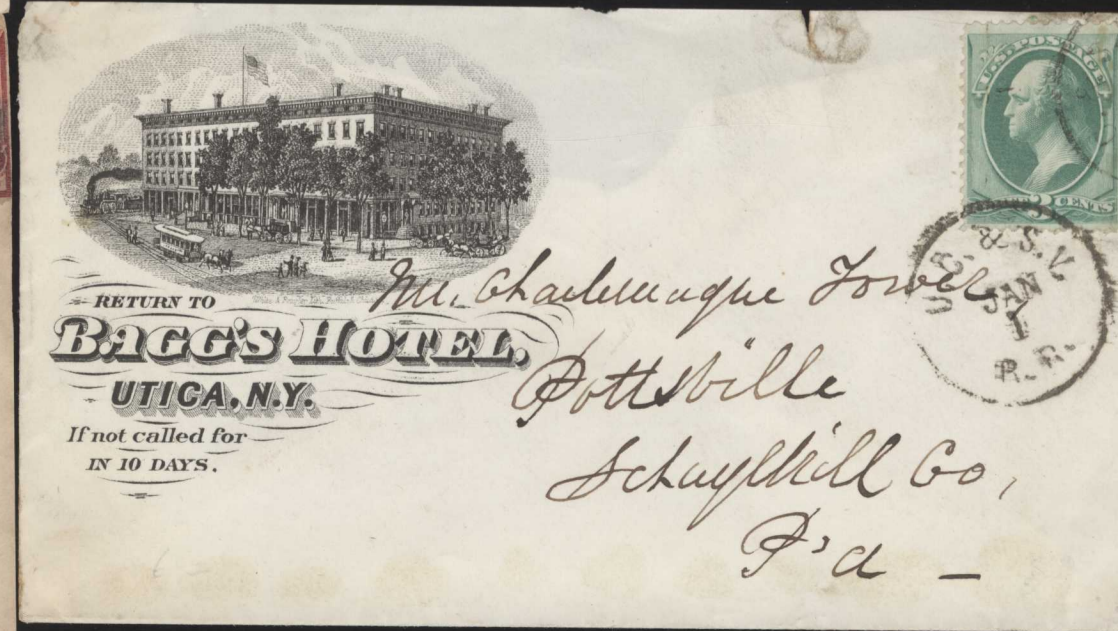 RETURN TO
BAGG'S HOTEL,
UTICA, N.Y.
If not called for
IN 10 DAYS.
U.S. POSTAGE
3 CENTS
& S.V.
JAN
1
R.R.
Mr. Charlemagne Tower
Pottsville
Schuylkill Co,
P'a